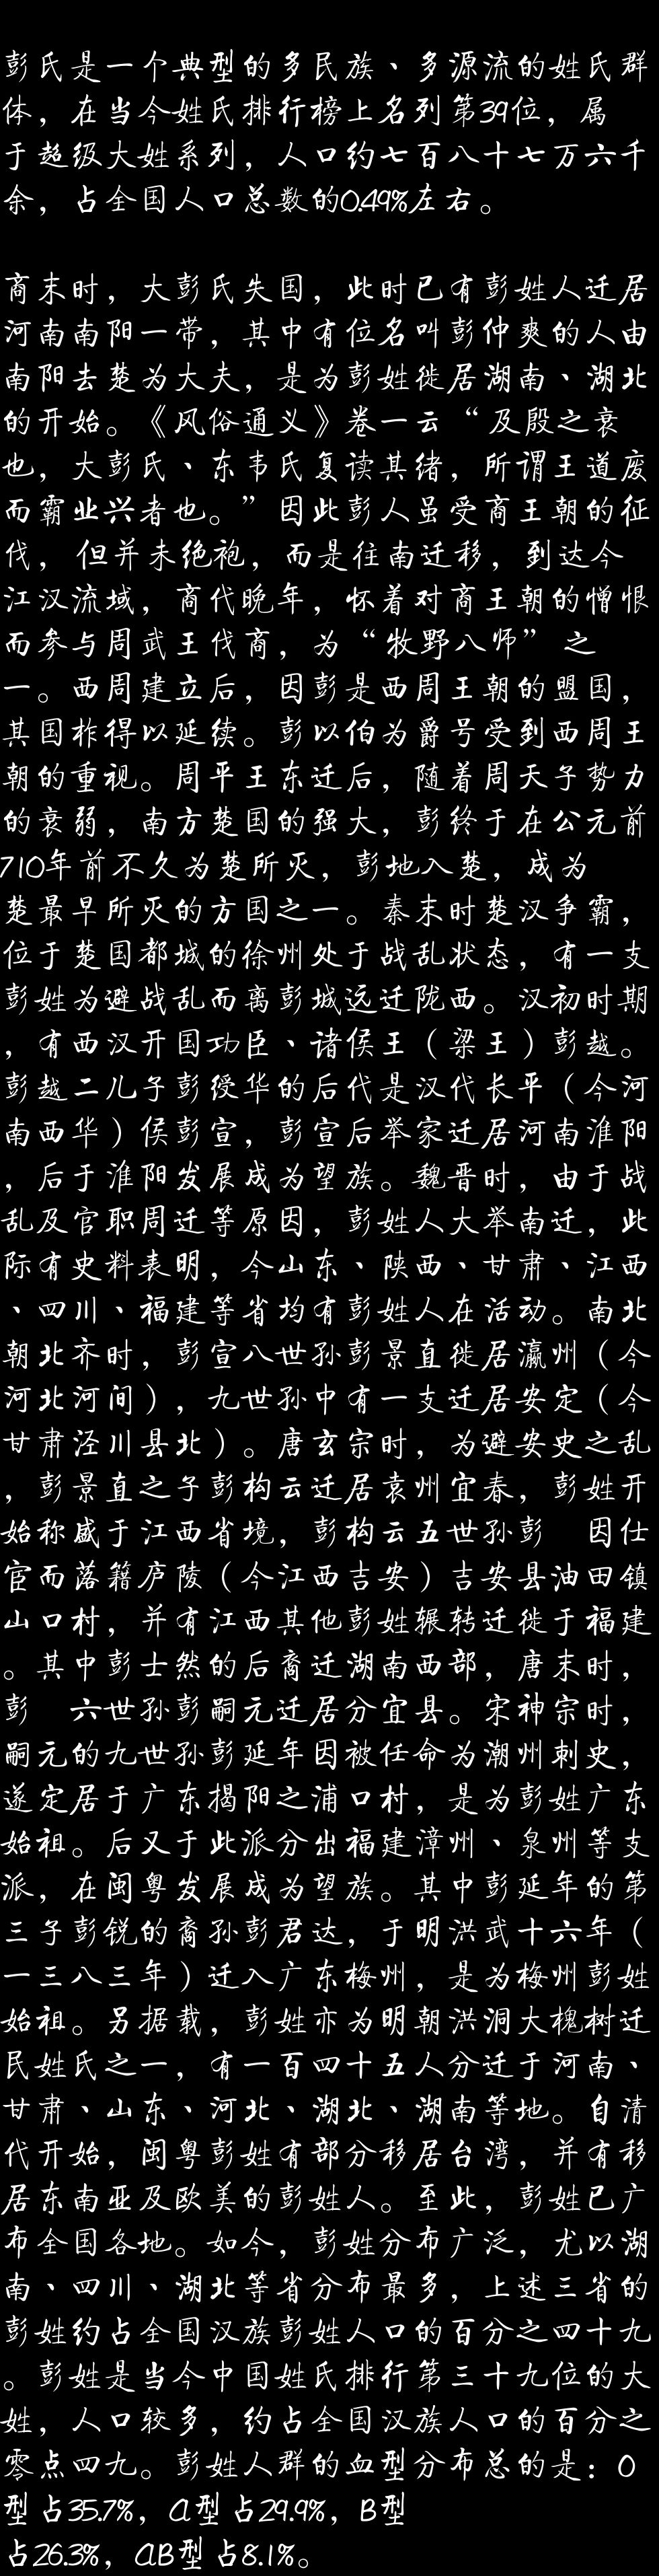 彭氏是一个典型的多民族、多源流的姓氏群
体，在当今姓氏排行榜上名列第39位，属
于超级大姓系列，人口约七百八十七万六千
余，占全国人口总数的0.49%左右。
商末时，大彭氏失国，此时已有彭姓人迁居
河南南阳一带，其中有位名叫彭仲爽的人由
南阳去楚为大夫，是为彭姓徙居湖南、湖北
的开始。《风俗通义》卷一云“及殷之衰
也，大彭氏、东韦氏复读其绪，所谓王道废
而霸业兴者也。”因此彭人虽受商王朝的征
伐，但并未绝袍，而是往南迁移，到达今
江汉流域，商代晚年，怀着对商王朝的憎恨
而参与周武王伐商，为“牧野八师”之
一。西周建立后，因彭是西周王朝的盟国，
其国柞得以延续。彭以伯为爵号受到西周王
朝的重视。周平王东迁后，随着周天子势力
的衰弱，南方楚国的强大，彭终于在公元前
710年前不久为楚所灭，彭地入楚，成为
楚最早所灭的方国之一。秦末时楚汉争霸，
位于楚国都城的徐州处于战乱状态，有一支
彭姓为避战乱而离彭城远迁陇西。汉初时期
，有西汉开国功臣、诸侯王（梁王）彭越。
彭越二儿子彭绶华的后代是汉代长平（今河
南西华）侯彭宣，彭宣后举家迁居河南淮阳
，后于淮阳发展成为望族。魏晋时，由于战
乱及官职周迁等原因，彭姓人大举南迁，此
际有史料表明，今山东、陕西、甘肃、江西
、四川、福建等省均有彭姓人在活动。南北
朝北齐时，彭宣八世孙彭景直徙居瀛州（今
河北河间），九世孙中有一支迁居安定（今
甘肃泾川县北）。唐玄宗时，为避安史之乱
，彭景直之子彭构云迁居袁州宜春，彭姓开
始称盛于江西省境，彭构云五世孙彭　因仕
宦而落籍庐陵（今江西吉安）吉安县油田镇
山口村，并有江西其他彭姓辗转迁徙于福建
。其中彭士然的后裔迁湖南西部，唐末时，
彭　六世孙彭嗣元迁居分宜县。宋神宗时，
嗣元的九世孙彭延年因被任命为潮州刺史，
遂定居于广东揭阳之浦口村，是为彭姓广东
始祖。后又于此派分出福建漳州、泉州等支
派，在闽粤发展成为望族。其中彭延年的第
三子彭锐的裔孙彭君达，于明洪武十六年（
一三八三年）迁入广东梅州，是为梅州彭姓
始祖。另据载，彭姓亦为明朝洪洞大槐树迁
民姓氏之一，有一百四十五人分迁于河南、
甘肃、山东、河北、湖北、湖南等地。自清
代开始，闽粤彭姓有部分移居台湾，并有移
居东南亚及欧美的彭姓人。至此，彭姓已广
布全国各地。如今，彭姓分布广泛，尤以湖
南、四川、湖北等省分布最多，上述三省的
彭姓约占全国汉族彭姓人口的百分之四十九
。彭姓是当今中国姓氏排行第三十九位的大
姓，人口较多，约占全国汉族人口的百分之
零点四九。彭姓人群的血型分布总的是：O
型占35.7%，A型占29.9%，B型
占26.3%，AB型占8.1%。